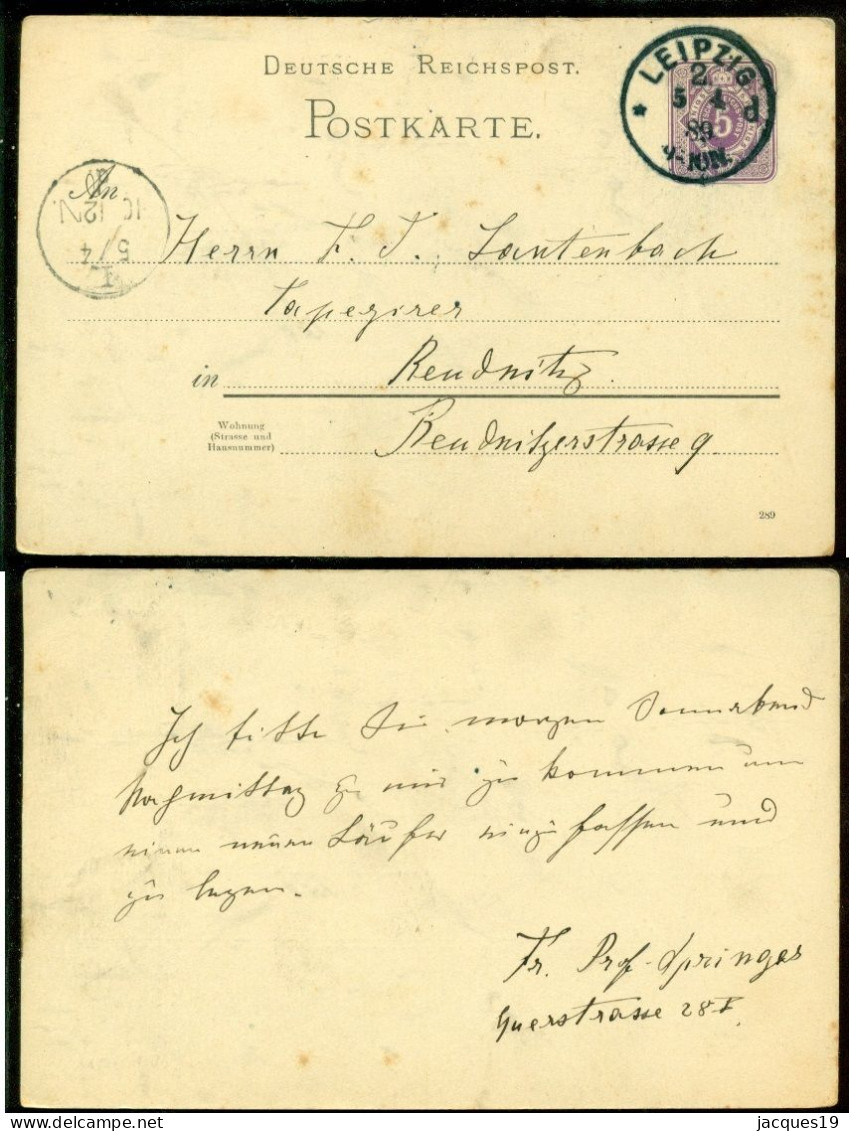 DEUTSCHE REICHSPOST.
POSTKARTE.
LEIPZIG
2
5 4
d
89
9-10N.
5
An
10-12N.
5/4
Herrn F. J. Lautenbach
Tapezirer
in Reudnitz.
Wohnung
(Strasse und
Hausnummer)
Reudnitzerstrasse 9.
289
Ich bitte Sie morgen Sonnabend
Nachmittag zu mir zu kommen um
einen neuen Läufer einzufassen und
zu legen.
Fr. Prof. Springer
Querstrasse 28 I.
www.delcampe.net
jacques19